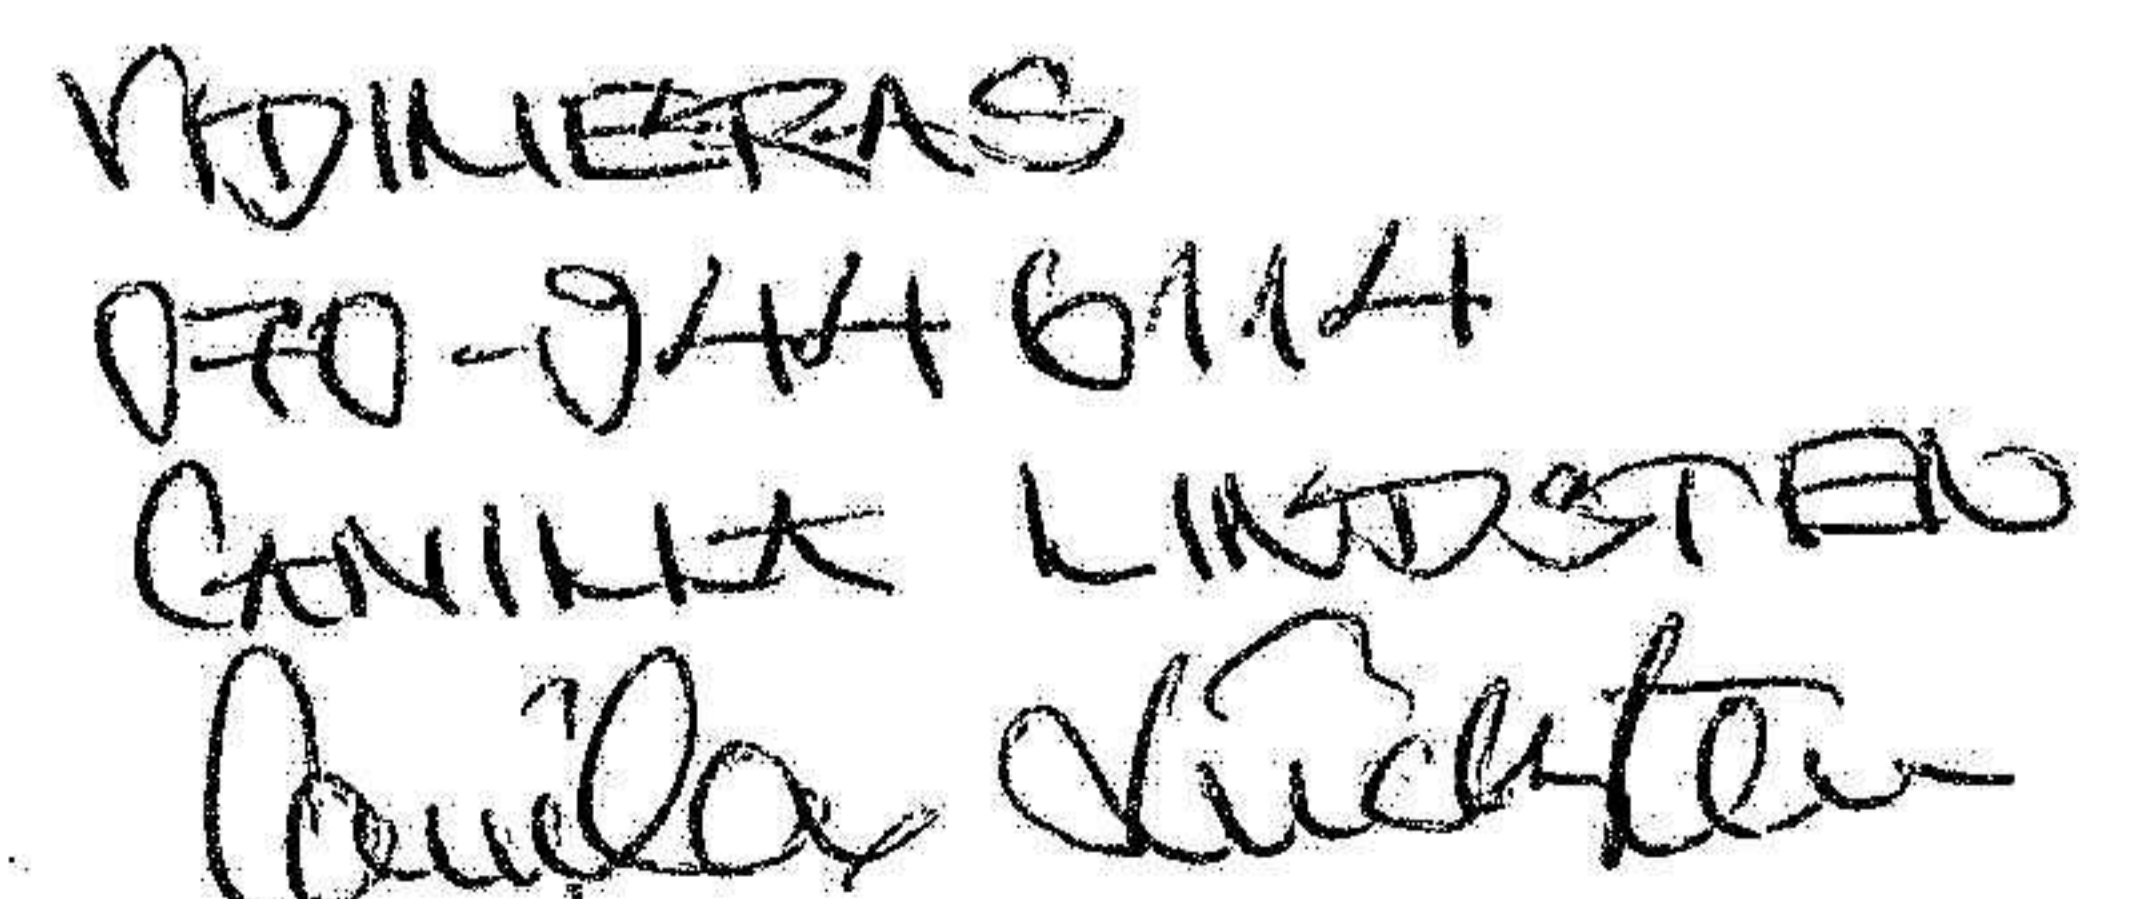 ADIMERAS
070-944 6114
CAMILLA LINDSTEN
Camilla Lindsten